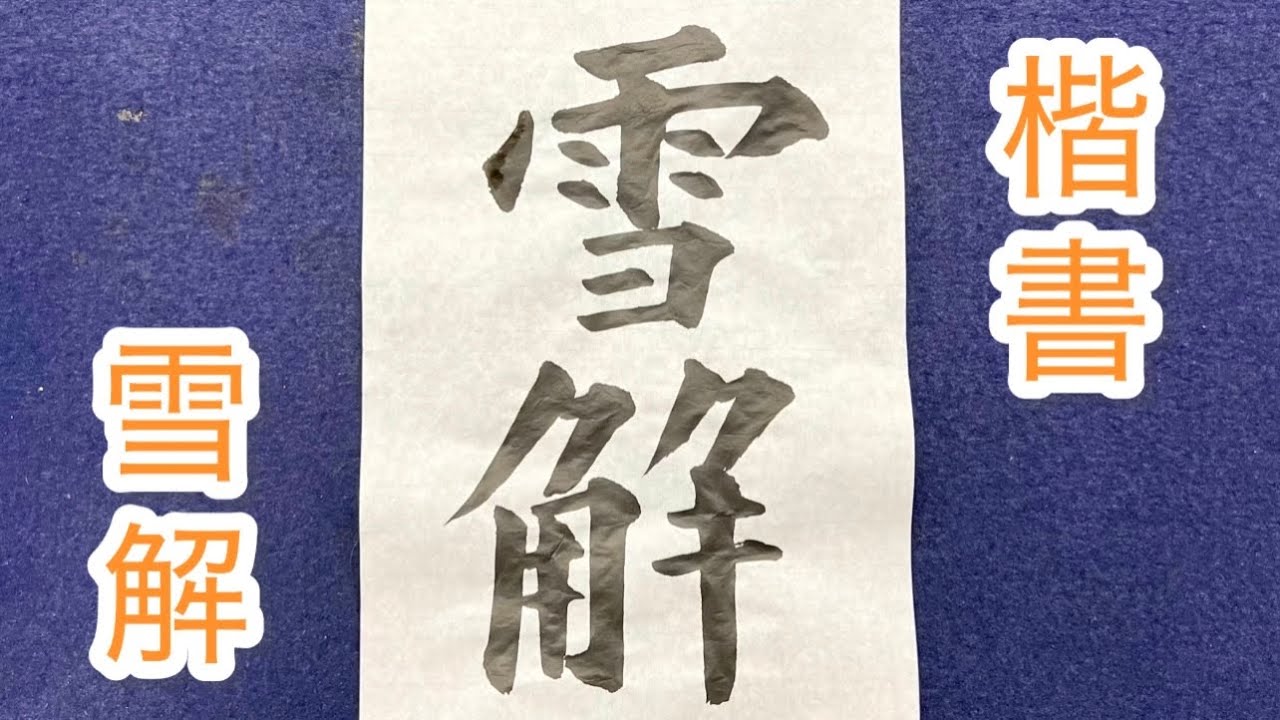 楷書
雪解
雪解